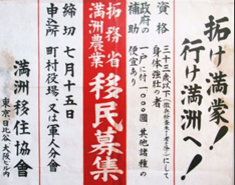 拓け満蒙!
行け満洲へ!
資格
三十五歳以下
にして
身体強壮の者
政府の補助
一戸に付一〇〇〇圓 其他諸種の
便宜あり
拓務省
満洲農業
移民募集
締切 七月十五日
申込所 町村役場、又は軍人分會
満洲移住協會
東京日比谷、大阪ビル内